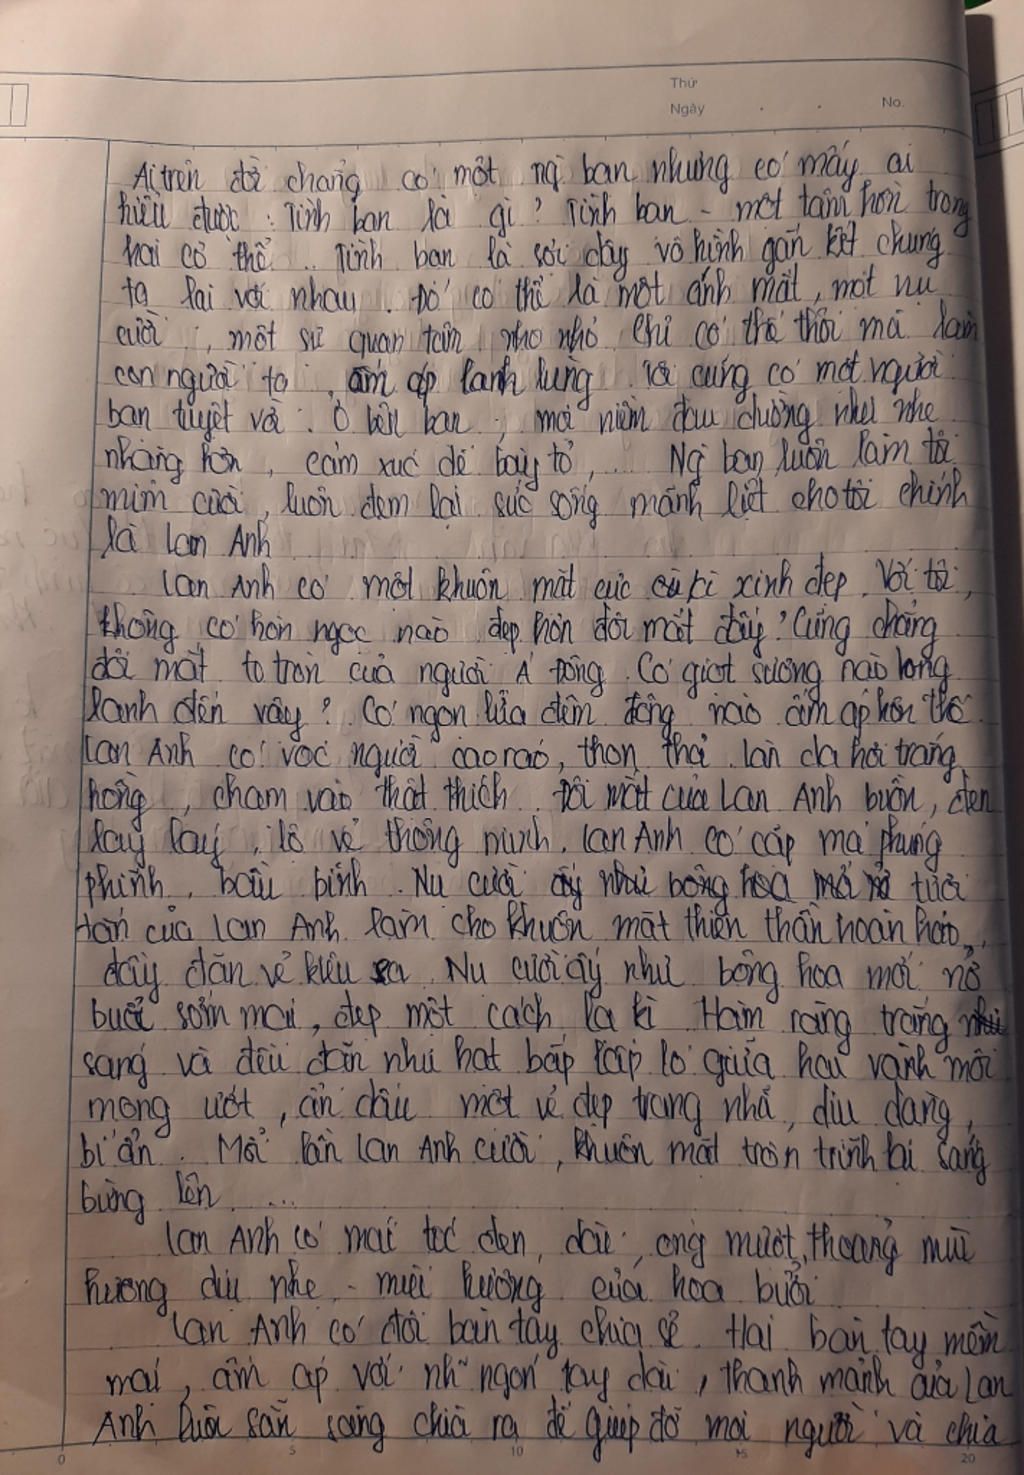 Thứ
Ngày . . No.
Ai trên đời chẳng có một ng bạn nhưng có mấy ai
hiểu được : Tình bạn là gì ? Tình bạn - một tâm hồn trong
hai cơ thể .. Tình bạn là sợi dây vô hình gắn kết chúng
ta lại với nhau . Đó có thể là một ánh mắt , một nụ
cười , một sự quan tâm nho nhỏ chỉ có thế thôi mà làm
con người ta , ấm áp lạnh lùng . Tôi cũng có một người
bạn tuyệt vời . Ở bên bạn , mọi niềm đau dường như nhẹ
nhàng hơn , cảm xúc dễ bày tỏ , ... Ng bạn luôn làm tôi
mỉm cười , luôn đem lại sức sống mãnh liệt cho tôi chính
là Lan Anh
Lan Anh có một khuôn mặt cực kì xinh đẹp . Với tôi ,
không có hòn ngọc nào đẹp hơn đôi mắt đấy ! Cũng chẳng
đôi mắt to tròn của người Á Đông . Có giọt sương nào long
lanh đến vậy ? Có ngọn lửa đêm đông nào ấm áp hơn thế
Lan Anh có vóc người cao ráo , thon thả . làn da hơi trắng
hồng , chạm vào thật thích . Đôi mắt của Lan Anh buồn , đen
lay láy , lộ vẻ thông minh . Lan Anh có cặp má phúng
phính , bầu bĩnh . Nụ cười tươi
tắn của Lan Anh làm cho khuôn mặt thiên thần hoàn hảo ,
đầy đặn vẻ kiêu sa . Nụ cười ấy như bông hoa mới nở
buổi sớm mai , đẹp một cách lạ kì . Hàm răng trắng
sáng và đều đặn như hạt bắp lấp ló giữa hai vành môi
mọng ướt , ẩn dấu một vẻ đẹp trang nhã , dịu dàng ,
bí ẩn . Mỗi lần Lan Anh cười , khuôn mặt tròn trĩnh lại sáng
bừng lên ....
Lan Anh có mái tóc đen , dài , óng mượt , thoảng mùi
hương dịu nhẹ - mùi hương của hoa bưởi
Lan Anh có đôi bàn tay chia sẻ . Hai bàn tay mềm
mại , ấm áp với nh~ ngón tay dài , thanh mảnh của Lan
Anh luôn sẵn sàng chìa ra để giúp đỡ mọi người và chia
0 5 10 15 20